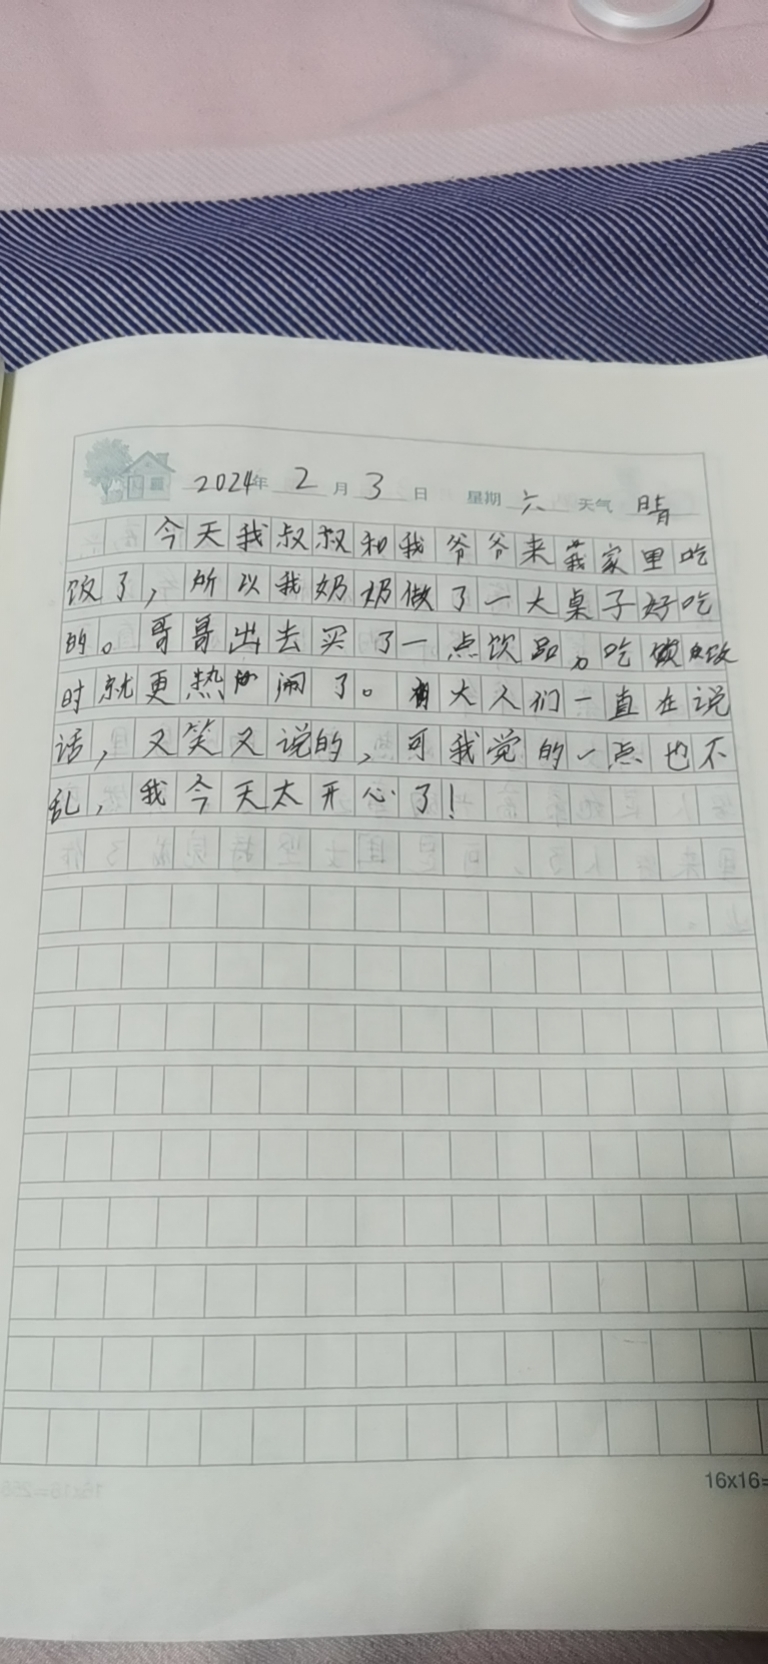 2024年 2月 3日 星期六 天气 晴
今天我叔叔和我爷爷来我家里吃
饭了，所以我奶奶做了一大桌子好吃
的。哥哥出去买了一点饮品，吃饭
时就更热闹了。大人们一直在说
话，又笑又说的，可我觉的一点也不
乱，我今天太开心了！
16x16=